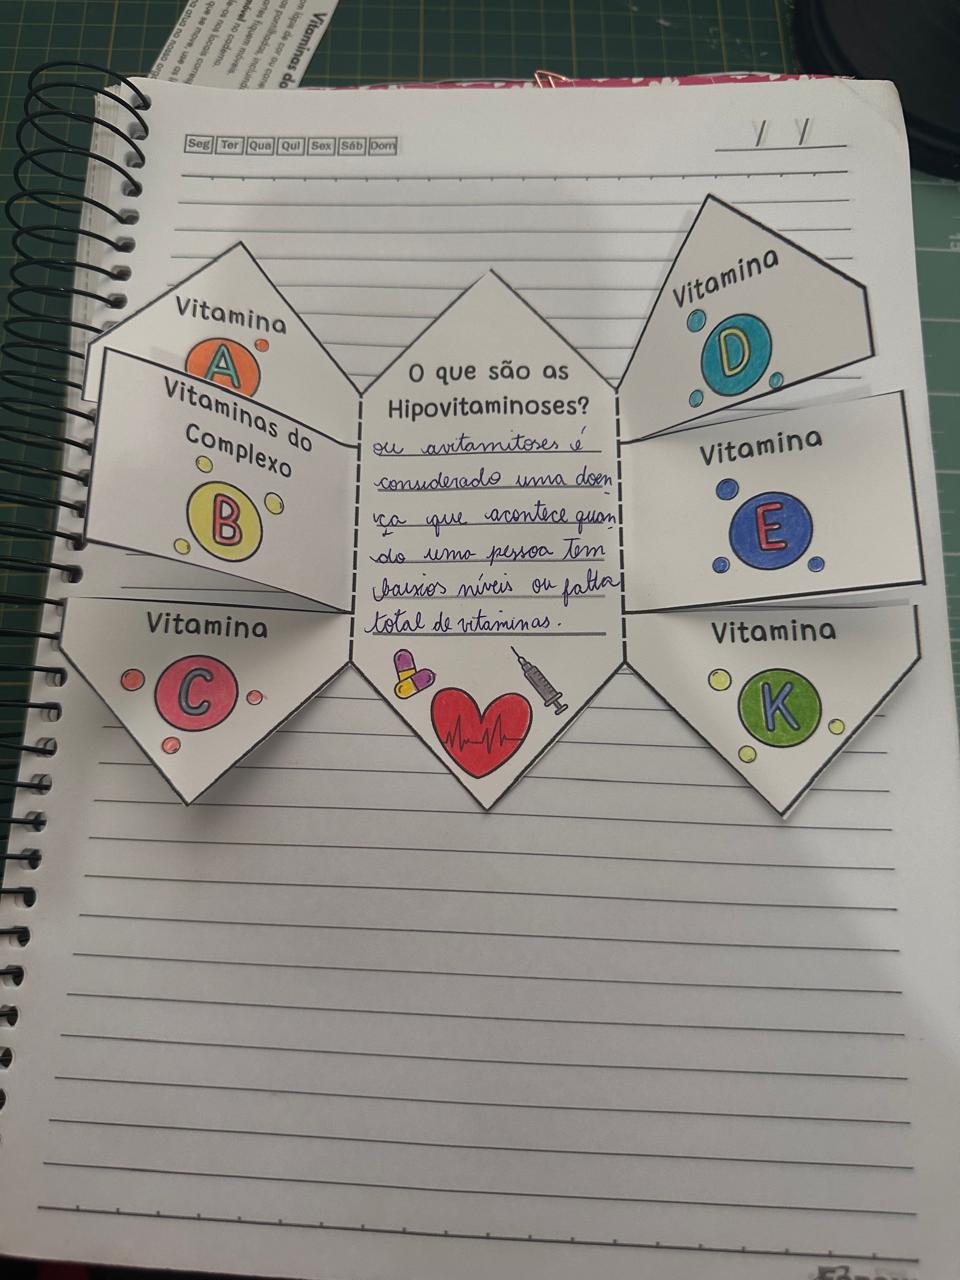 Vitaminas do
Seg Ter Qua Qui Sex Sáb Dom
/ /
Vitamina
A
Vitaminas do
Complexo
B
Vitamina
C
O que são as
Hipovitaminoses?
ou avitamitoses é
considerado uma doen
ça que acontece quan
do uma pessoa tem
baixos níveis ou falta
total de vitaminas.
Vitamina
D
Vitamina
E
Vitamina
K